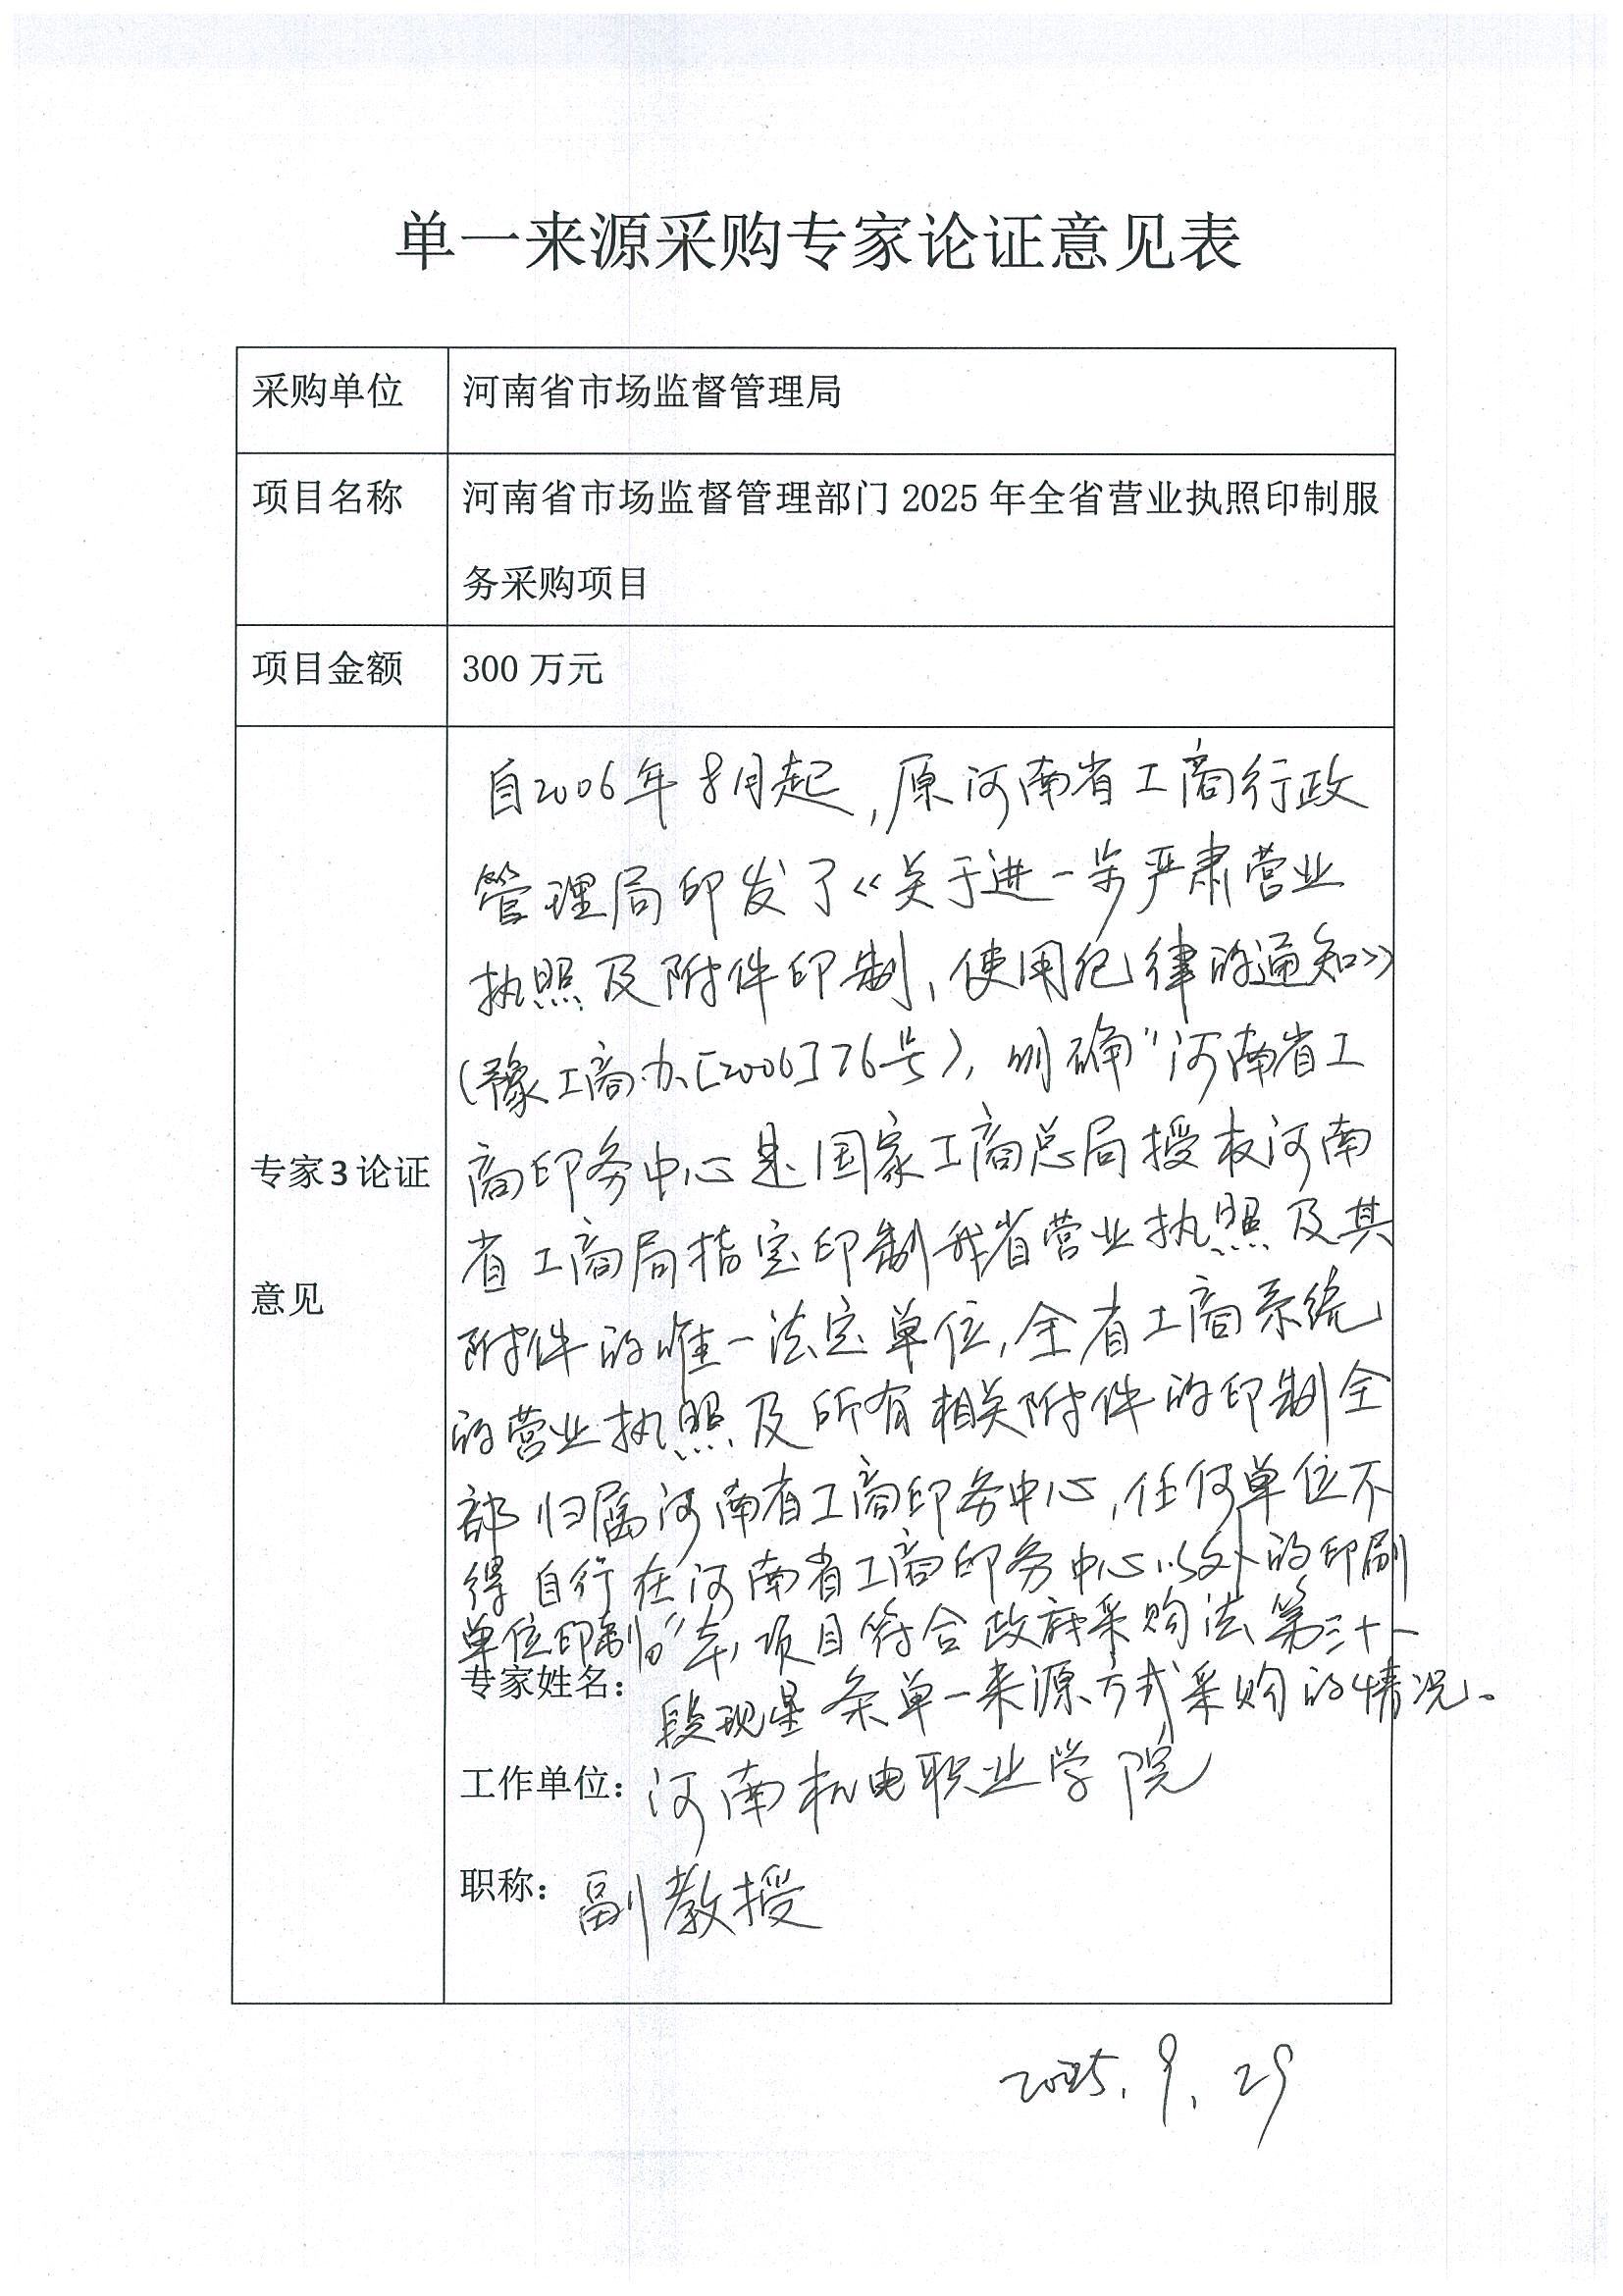 单一来源采购专家论证意见表
采购单位
河南省市场监督管理局
项目名称
河南省市场监督管理部门 2025 年全省营业执照印制服
务采购项目
项目金额
300 万元
专家3论证
意见
自2006年8月起,原河南省工商行政
管理局印发了《关于进一步严肃营业
执照及附件印制、使用纪律的通知》
(豫工商办[2006]76号),明确"河南省工
商印务中心是国家工商总局授权河南
省工商局指定印制我省营业执照及其
附件的唯一法定单位,全省工商系统
的营业执照及所有相关附件的印制全
部归属河南省工商印务中心,任何单位不
得自行在河南省工商印务中心以外的印刷
单位印制。"本项目符合政府采购法第三十一
条单一来源方式采购的情况。
专家姓名: 段现星
工作单位: 河南机电职业学院
职称: 副教授
2025.9.29